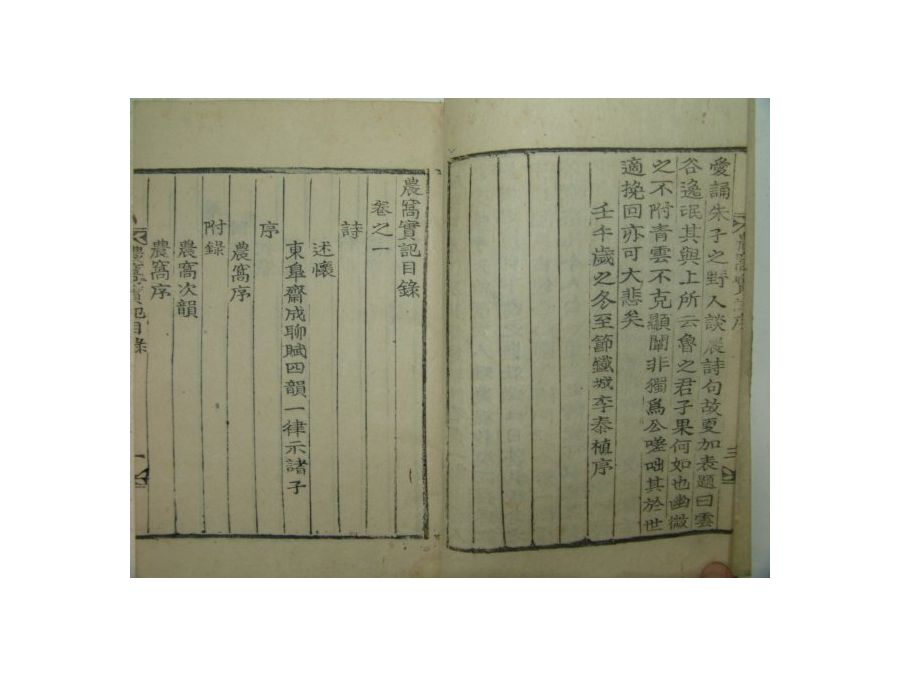 愛誦朱子之野人談農詩句故更加表題曰雲
谷逸氓其與上所云魯之君子果何如也幽微
之不附青雲不克顯闡非獨爲公嗟咄其於世
適挽回亦可大悲矣
壬午歲之冬至節鐵城李泰植序
三
農窩實記目錄
卷之一
詩
述懷
東皐齋成聊賦四韻一律示諸子
序
農窩序
附錄
農窩次韻
農窩序
農窩實記目錄
一